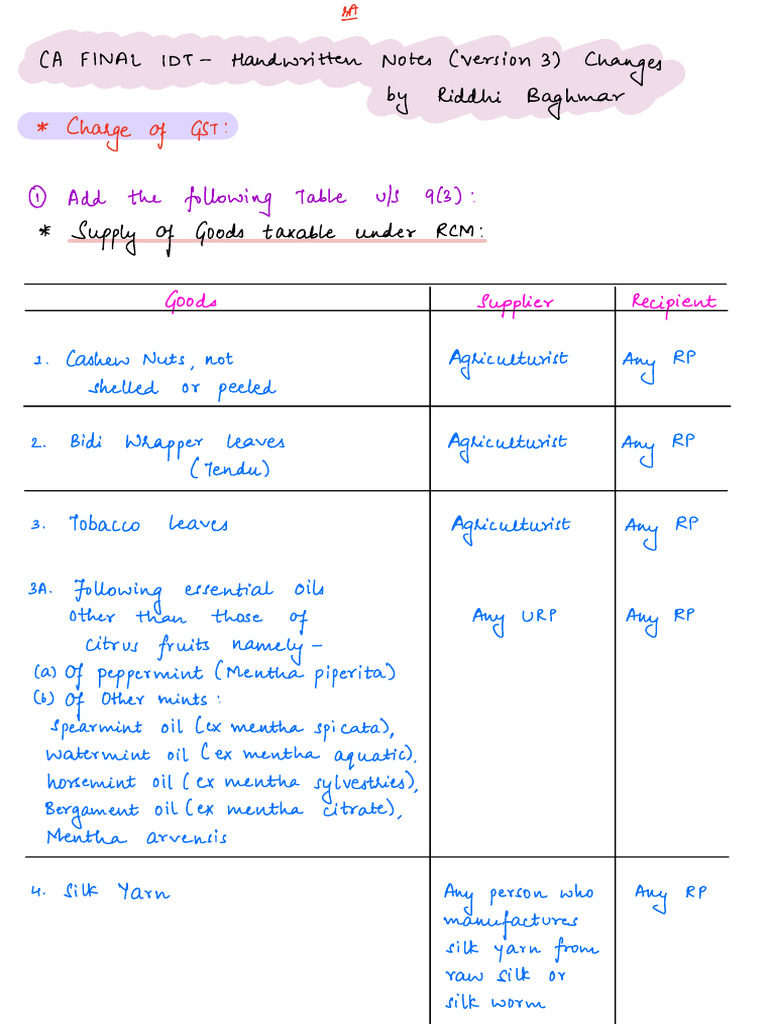 RA
CA FINAL IDT - Handwritten Notes (version 3) Changes
by Riddhi Baghmar
* Charge of GST:
① Add the following Table u/s 9(3):
* Supply of Goods taxable under RCM:
Goods Supplier Recipient
1. Cashew Nuts, not Agriculturist Any RP
shelled or peeled
2. Bidi Wrapper leaves Agriculturist Any RP
(Tendu)
3. Tobacco leaves Agriculturist Any RP
3A. Following essential oils
other than those of Any URP Any RP
citrus fruits namely -
(a) Of peppermint (Mentha piperita)
(b) Of Other mints:
Spearmint oil (ex mentha spicata),
Watermint oil (ex mentha aquatic).
horsemint oil (ex mentha sylvestries),
Bergament oil (ex mentha citrate),
Mentha arvensis
4. Silk Yarn Any person who Any RP
manufactures
silk yarn from
raw silk or
silk worm